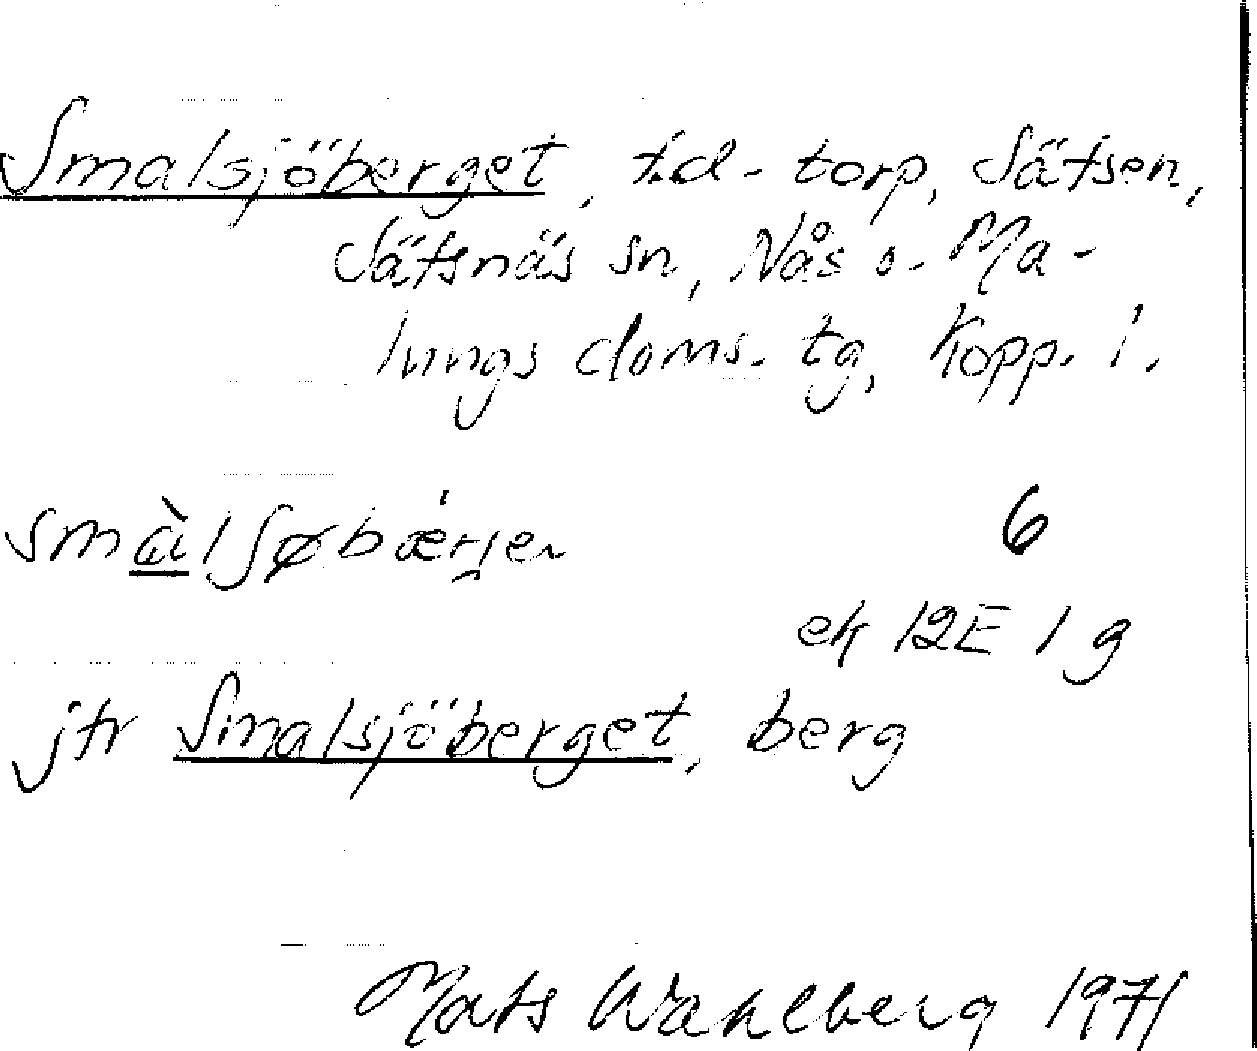 Smalsjöberget, f.d. torp, Sätsen,
Sätsnäs sn, Nås o. Ma-
lungs doms. tg, Kopp. l.
smàlʃøbær
6
ek 12E 1 g
jfr Smalsjöberget, berg
Mats Wahlberg 1971